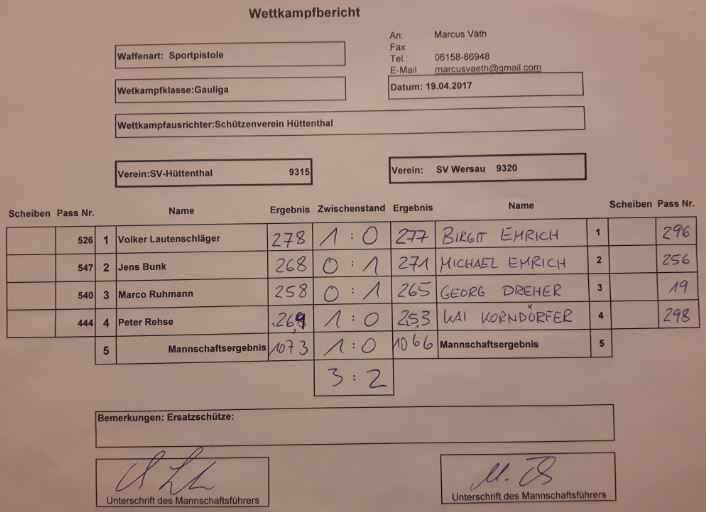 Wettkampfbericht
An: Marcus Väth
Fax
Tel.: 06158-86948
E-Mail marcusvaeth@gmail.com
Waffenart: Sportpistole
Wetkampfklasse:Gauliga
Datum: 19.04.2017
Wettkampfausrichter:Schützenverein Hüttenthal
Verein:SV-Hüttenthal 9315
Verein: SV Wersau 9320
Scheiben Pass Nr. Name Ergebnis Zwischenstand Ergebnis Name Scheiben Pass Nr.
526 1 Volker Lautenschläger 278 1 : 0 277 BIRGIT EMRICH 1 296
547 2 Jens Bunk 268 0 : 1 271 MICHAEL EMRICH 2 256
540 3 Marco Ruhmann 258 0 : 1 265 GEORG DREHER 3 19
444 4 Peter Rehse 269 1 : 0 253 KAI KORNDÖRFER 4 298
5 Mannschaftsergebnis 1073 1 : 0 1066 Mannschaftsergebnis 5
3 : 2
Bemerkungen: Ersatzschütze:
Unterschrift des Mannschaftsführers
Unterschrift des Mannschaftsführers